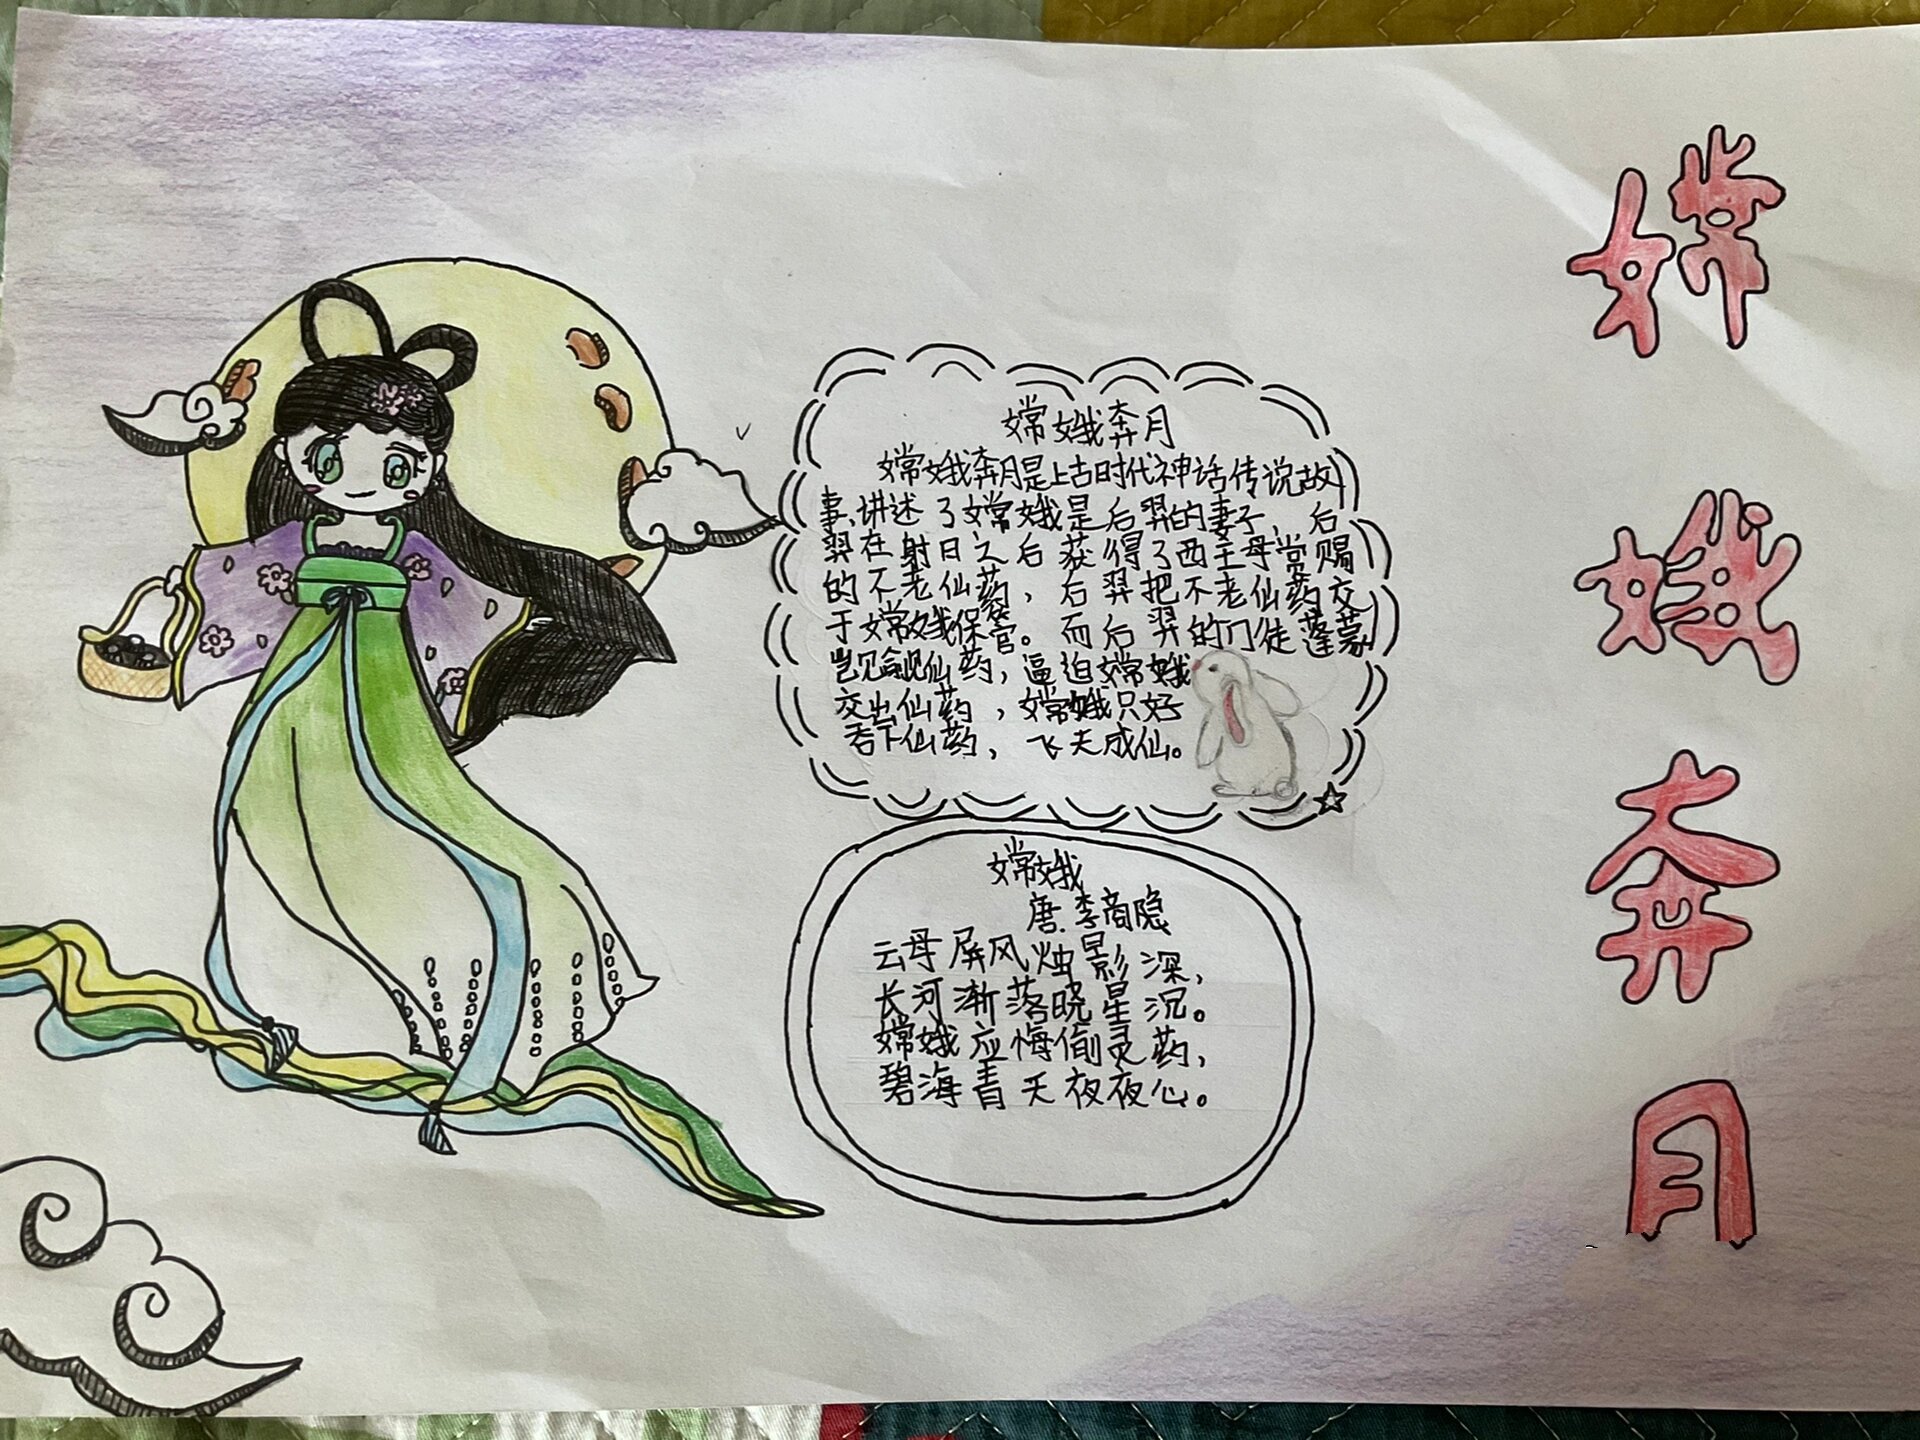 嫦娥奔月
嫦娥奔月
嫦娥奔月是上古时代神话传说故
事,讲述了嫦娥是后羿的妻子,后
羿在射日之后获得了西王母赏赐
的不老仙药,后羿把不老仙药交
于嫦娥保官。而后羿的门徒蓬蒙
觊觎仙药,逼迫嫦娥
交出仙药,嫦娥只好
吞下仙药,飞天成仙。
嫦娥
唐.李商隐
云母屏风烛影深,
长河渐落晓星沉。
嫦娥应悔偷灵药,
碧海青天夜夜心。